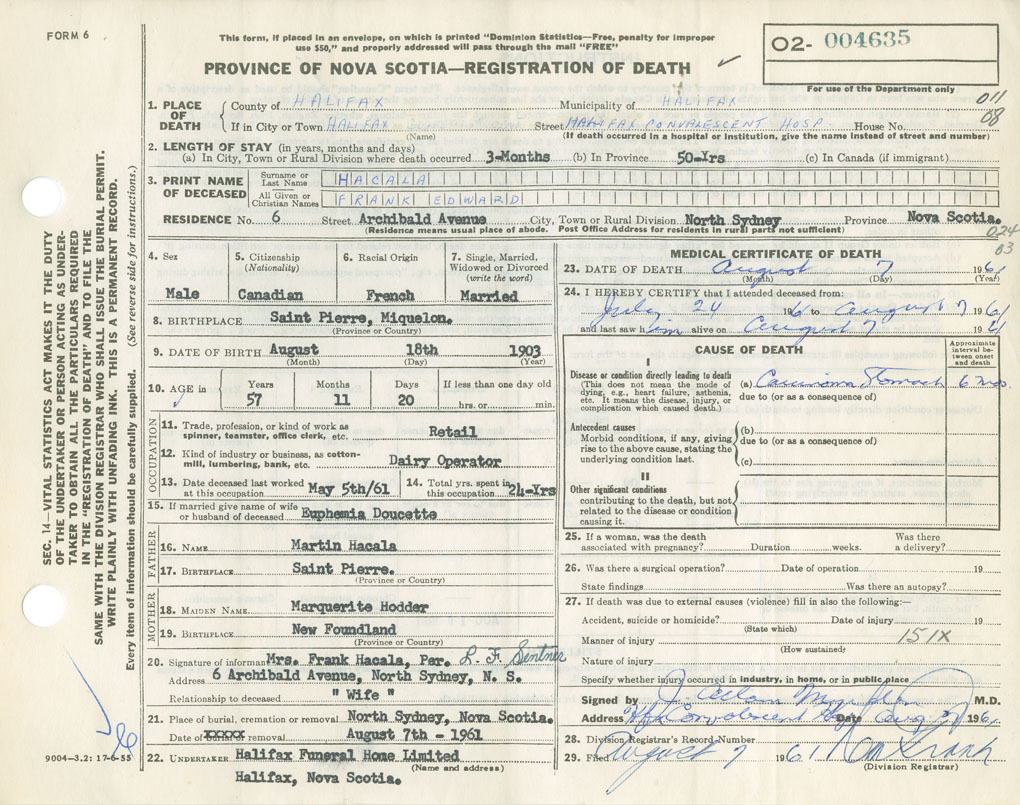 FORM 6
This form, if placed in an envelope, on which is printed "Dominion Statistics—Free, penalty for improper
use $50," and properly addressed will pass through the mail "FREE"
PROVINCE OF NOVA SCOTIA—REGISTRATION OF DEATH
02- 004635
For use of the Department only
011
08
1. PLACE OF DEATH
County of HALIFAX Municipality of HALIFAX
If in City or Town HALIFAX Street HALIFAX CONVALESCENT HOSP House No.
(Name) (If death occurred in a hospital or institution, give the name instead of street and number)
2. LENGTH OF STAY (in years, months and days)
(a) In City, Town or Rural Division where death occurred 3-Months (b) In Province 50-Yrs (c) In Canada (if immigrant)
3. PRINT NAME OF DECEASED
Surname or Last Name HACALA
All Given or Christian Names FRANK EDWARD
RESIDENCE No. 6 Street Archibald Avenue City, Town or Rural Division North Sydney Province Nova Scotia.
(Residence means usual place of abode. Post Office Address for residents in rural parts not sufficient)
024
03
4. Sex 5. Citizenship (Nationality) 6. Racial Origin 7. Single, Married, Widowed or Divorced (write the word)
Male Canadian French Married
8. BIRTHPLACE Saint Pierre, Miquelon.
(Province or Country)
9. DATE OF BIRTH August 18th 1903
(Month) (Day) (Year)
10. AGE in Years Months Days If less than one day old
57 11 20 hrs. or min.
OCCUPATION
11. Trade, profession, or kind of work as spinner, teamster, office clerk, etc. Retail
12. Kind of industry or business, as cotton-mill, lumbering, bank, etc. Dairy Operator
13. Date deceased last worked at this occupation May 5th/61 14. Total yrs. spent in this occupation 24-Yrs
15. If married give name of wife or husband of deceased Euphemia Doucette
FATHER
16. NAME Martin Hacala
17. BIRTHPLACE Saint Pierre.
(Province or Country)
MOTHER
18. MAIDEN NAME Marguerite Hodder
19. BIRTHPLACE New Foundland
(Province or Country)
20. Signature of informant Mrs. Frank Hacala, Per. L. F. Sintner
Address 6 Archibald Avenue, North Sydney, N. S.
Relationship to deceased " Wife "
21. Place of burial, cremation or removal North Sydney, Nova Scotia.
Date of xxxxx or removal August 7th - 1961
22. UNDERTAKER Halifax Funeral Home Limited
(Name and address)
Halifax, Nova Scotia.
MEDICAL CERTIFICATE OF DEATH
23. DATE OF DEATH August 7 1961
(Month) (Day) (Year)
24. I HEREBY CERTIFY that I attended deceased from:
July 24 1961 to August 7 1961
and last saw him alive on August 7 1961
CAUSE OF DEATH
Approximate interval between onset and death
I
Disease or condition directly leading to death
(This does not mean the mode of dying, e.g., heart failure, asthenia, etc. It means the disease, injury, or complication which caused death.)
(a) Carcinoma Stomach 6 mos.
due to (or as a consequence of)
Antecedent causes
Morbid conditions, if any, giving rise to the above cause, stating the underlying condition last.
(b)
due to (or as a consequence of)
(c)
II
Other significant conditions
contributing to the death, but not related to the disease or condition causing it.
25. If a woman, was the death associated with pregnancy? Duration weeks. Was there a delivery?
26. Was there a surgical operation? Date of operation 19
State findings Was there an autopsy?
27. If death was due to external causes (violence) fill in also the following:—
Accident, suicide or homicide? Date of injury 19
(State which)
Manner of injury 151X
(How sustained)
Nature of injury
Specify whether injury occurred in industry, in home, or in public place
Signed by M.D.
Address Hfx Convalescent Hosp Date Aug 7 1961
28. Division Registrar's Record Number
29. Filed August 7 1961
(Division Registrar)
SEC. 14—VITAL STATISTICS ACT MAKES IT THE DUTY
OF THE UNDERTAKER OR PERSON ACTING AS UNDER-
TAKER TO OBTAIN ALL THE PARTICULARS REQUIRED
IN THE "REGISTRATION OF DEATH" AND TO FILE THE
SAME WITH THE DIVISION REGISTRAR WHO SHALL ISSUE THE BURIAL PERMIT.
WRITE PLAINLY WITH UNFADING INK. THIS IS A PERMANENT RECORD.
Every item of information should be carefully supplied. (See reverse side for instructions.)
9004—3.2: 17-6-55